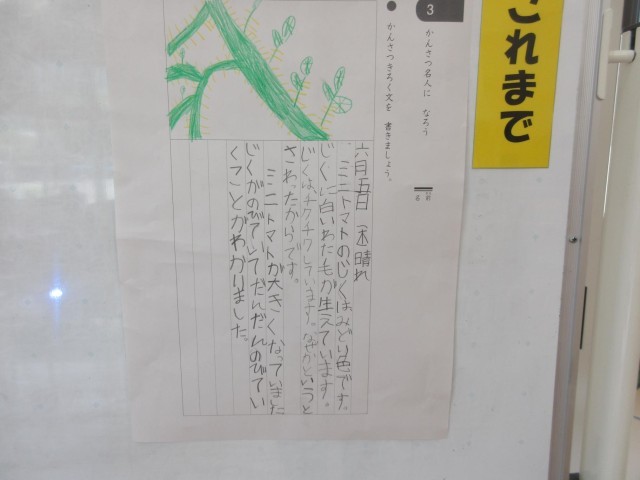 これまで
3
かんさつ名人に なろう
● かんさつきろく文を 書きましょう。
六月五日(木 晴れ
ミニトマトのじくはみどり色です。
じくに白いわたもが生えています。
じくはチクチクしています。なぜかというと
さわったからです。
ミニトマトが大きくなっていました
じくがのびていてだんだんのびてい
くことがわかりました。